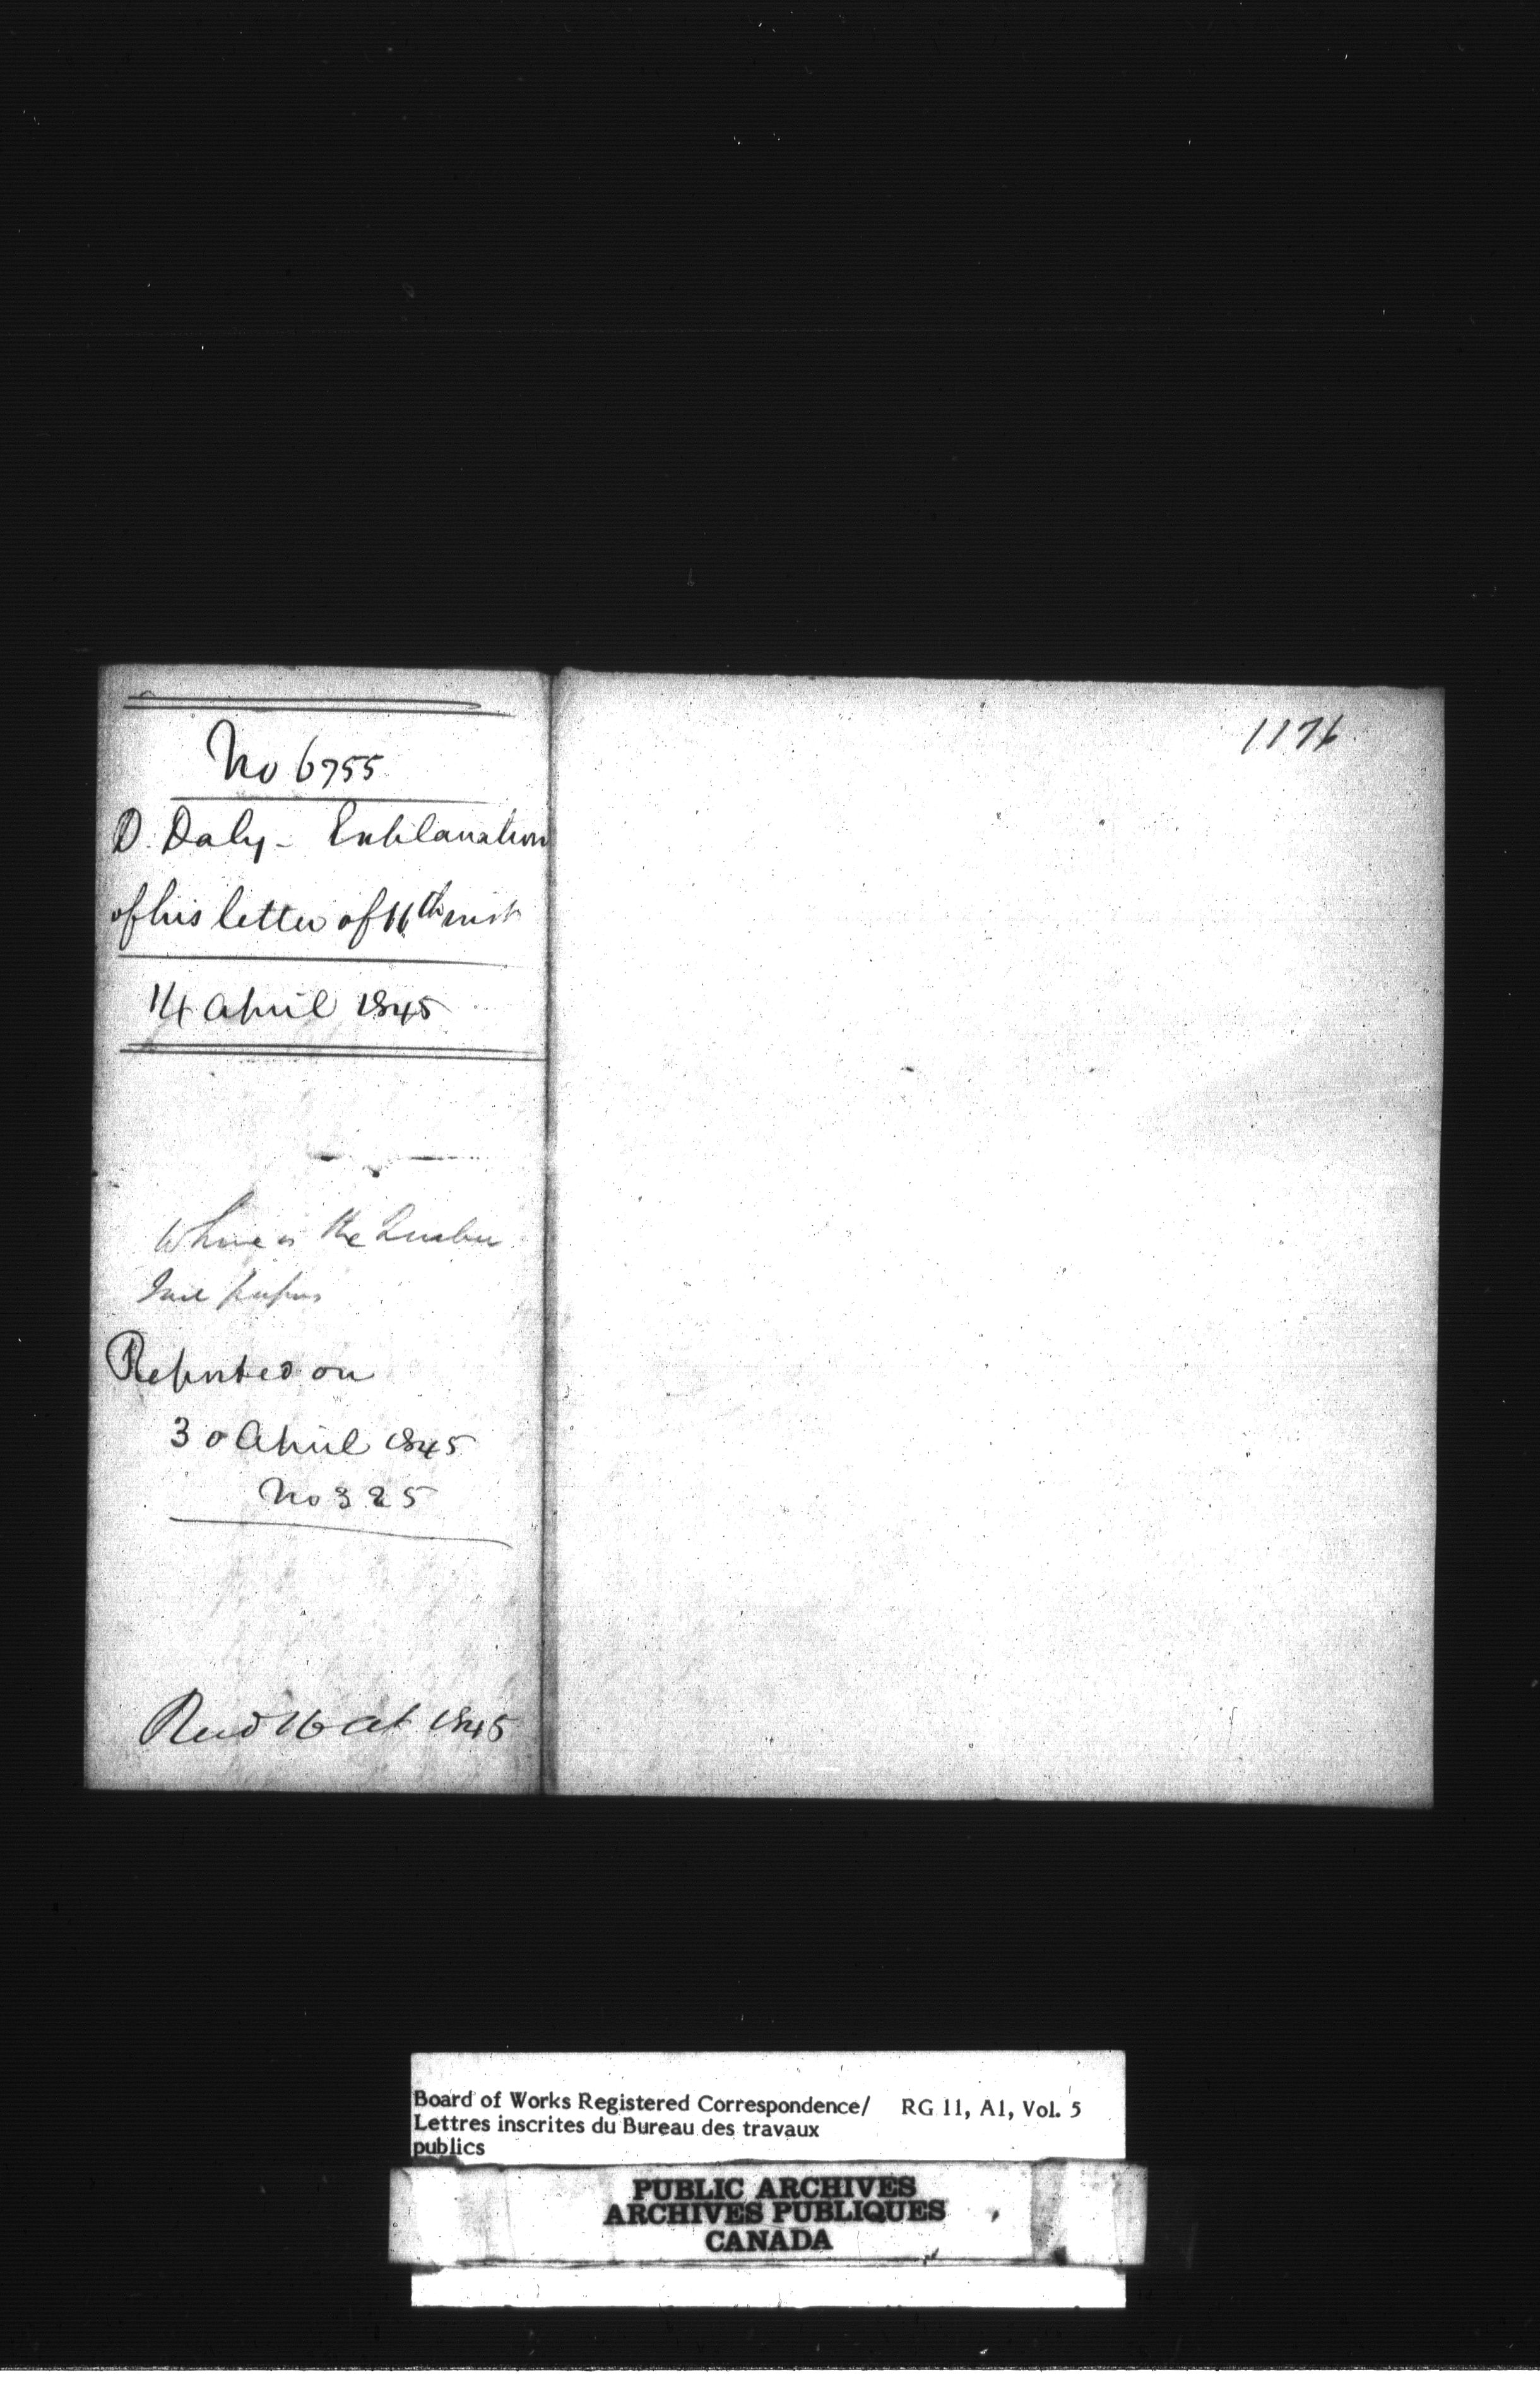 No 6755
D. Daly - Explanation
of his letter of 11th inst
14 April 1845
Where is the
Reported on
30 April 1845
No 325
Recd 16 1845
1176
Board of Works Registered Correspondence/ RG 11, A1, Vol. 5
Lettres inscrites du Bureau des travaux
publics
PUBLIC ARCHIVES
ARCHIVES PUBLIQUES
CANADA